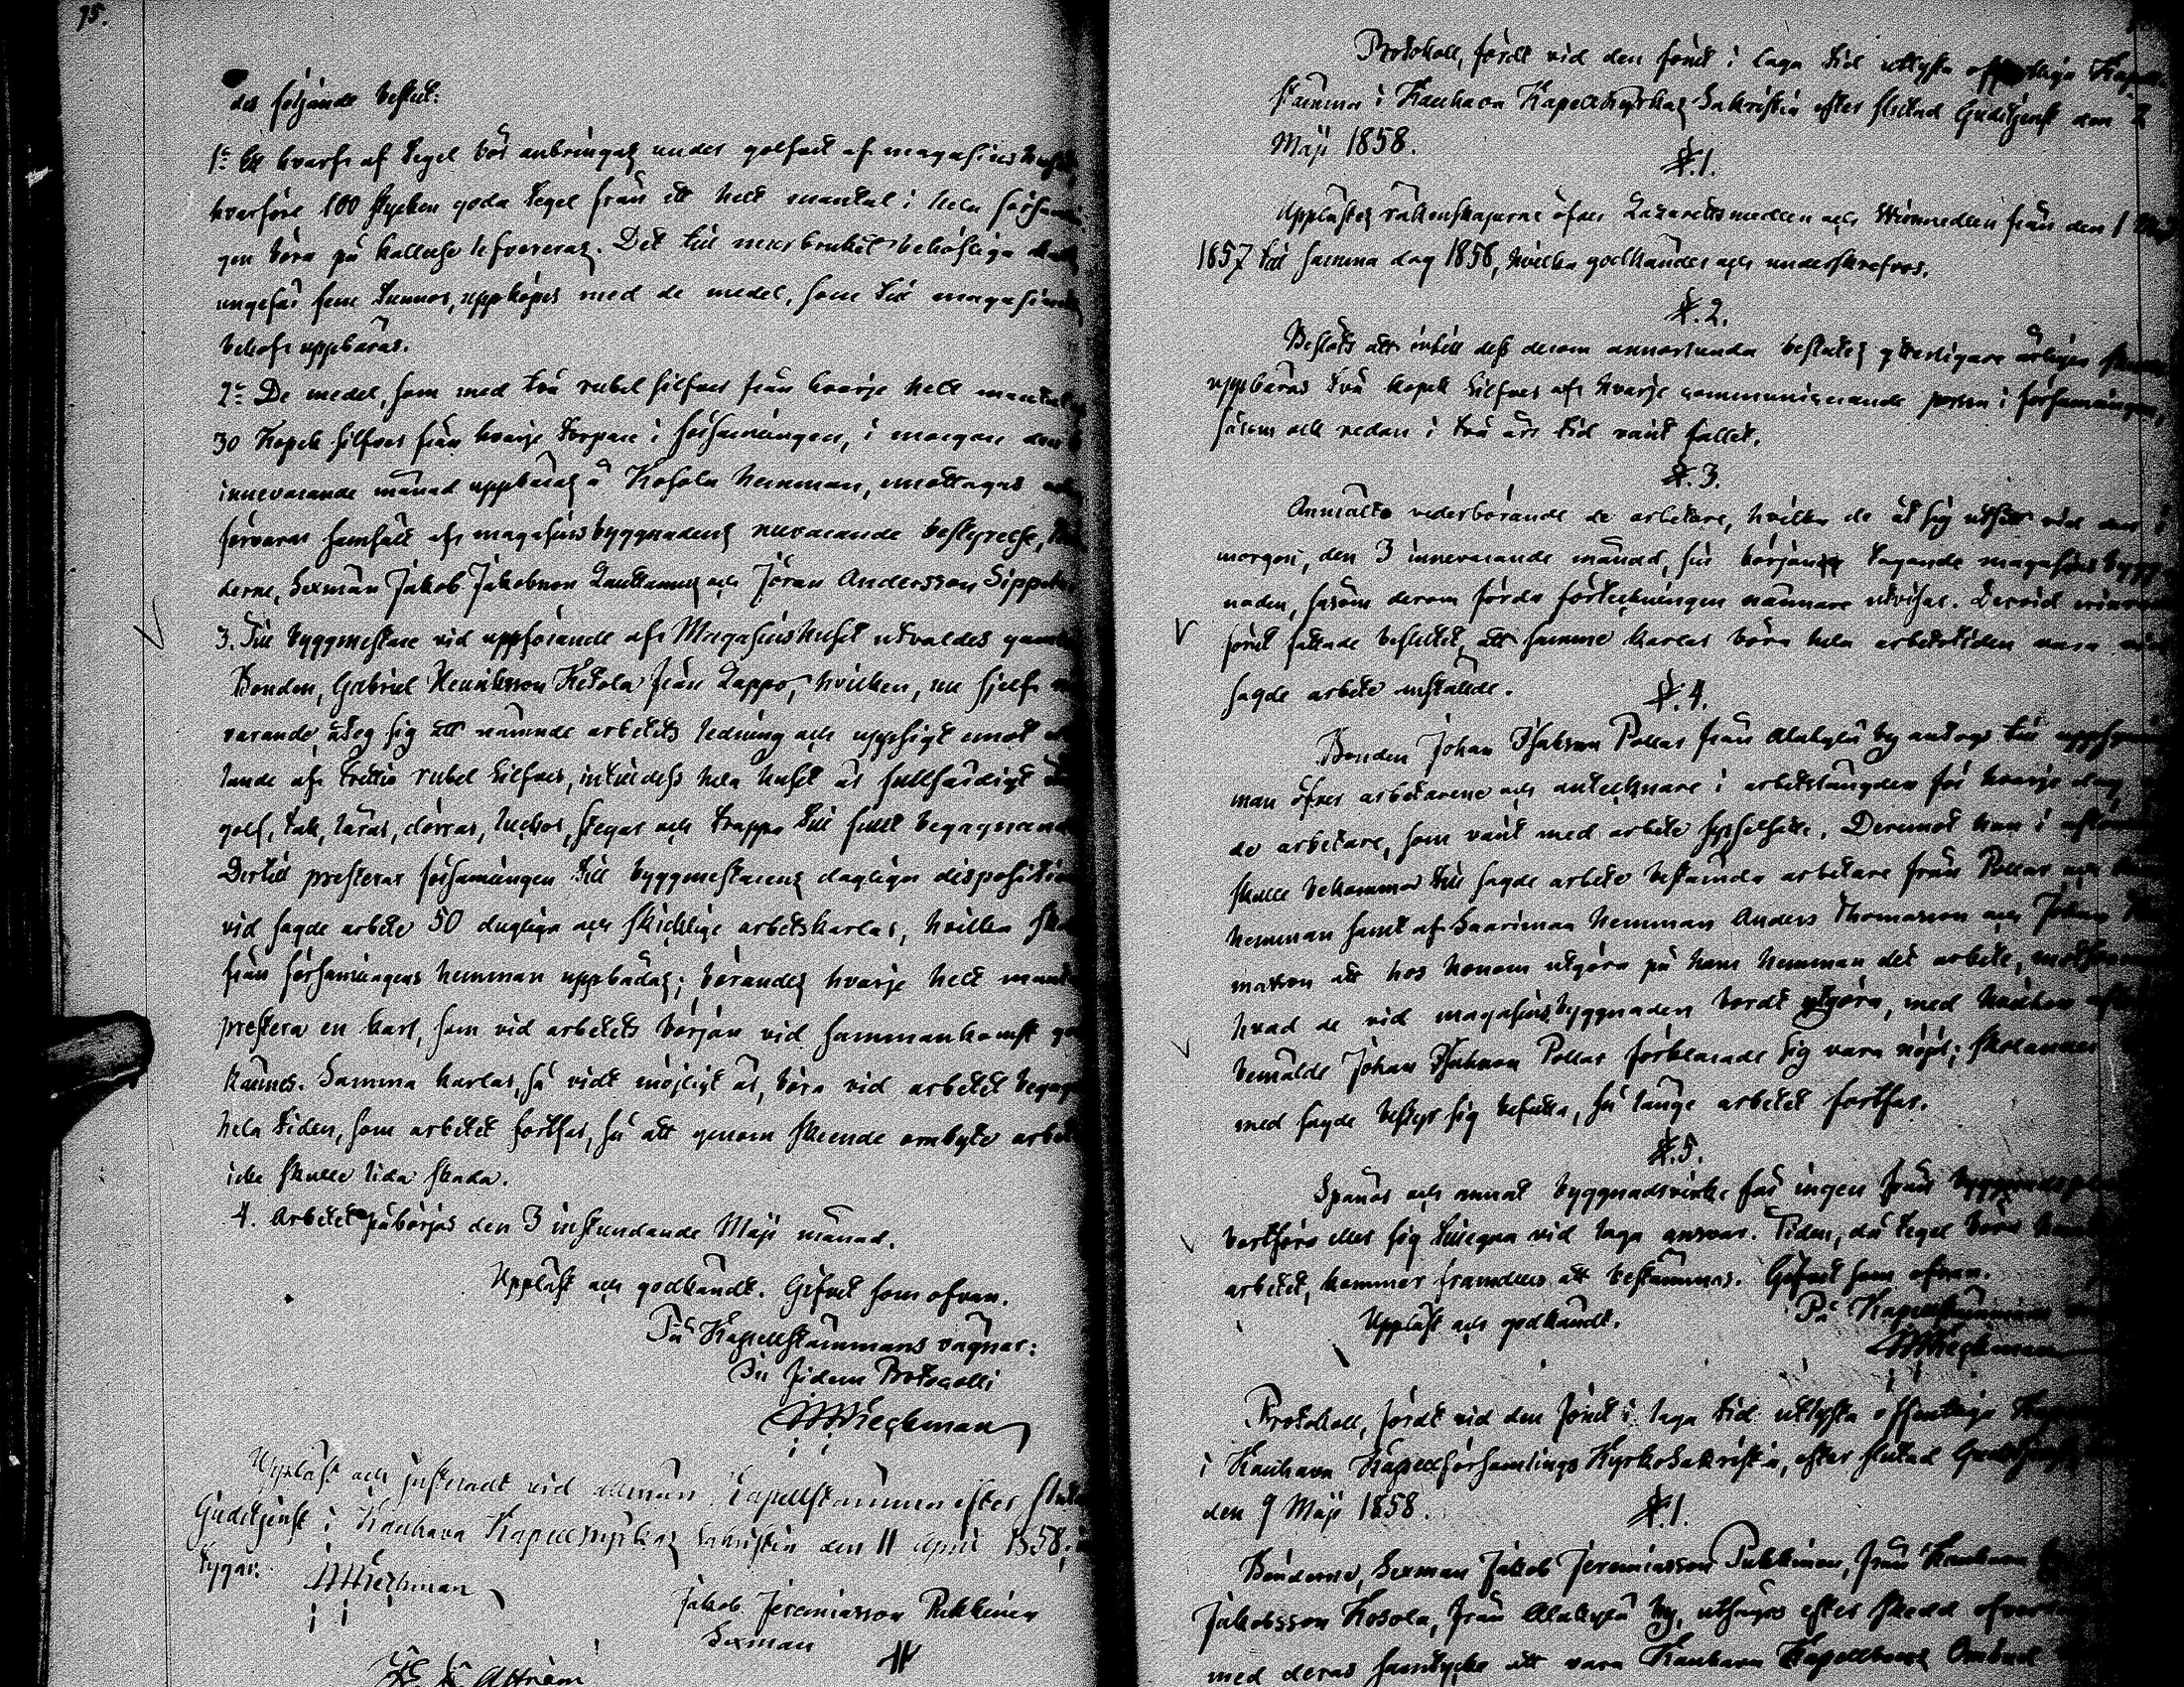 75.
des följande beslut:
1:o Ett hvarf af tegel bör anbringas under golfvet af magasinshuset,
hvarföre 100 stycken goda tegel från ett helt mantal i hela försam̄lin-
gen böra på kallelse lefvereras. Det till murbruket behöfliga
ungefär fem tunnor, uppköpes med de medel, som till magasinets
behof uppbäras.
2:o De medel, som med två rubel silfver från hvarje helt mantal
30 Kopek silfver från hvarje torpare i församlingen, i morgon den
innevarande månad uppbäras å Kosola hemman, emottages och
förvaras samfält af magasinsbyggnadens nuvarande bestyrelse,
derne, Sexman Jakob Jakobsson Lauttamus och Jöran Andersson Sippola
3. Till byggmestare vid uppförande af Magasinshuset utvaldes gamla
Bonden, Gabriel Henriksson Ketola från Lappo, hvilken, nu sjelf när-
varande, åtog sig att nämnde arbetets ledning och uppsigt emot
lande af trettio rubel silfver, intilldess hela huset är fullfärdigt
golf, tak, lårar, dörrar, luckor, stegar och trappa till fullt begagnande
Dertill presterar församlingen till byggmestarens dagliga disposition
vid sagde arbete 50 dugliga och skicklige arbetskarlar, hvilka
från församlingens hemman uppbådas; börandes hvarje helt mantal
prestera en karl, som vid arbetets början vid sammankomst god-
kännes. Samma karlar, så vidt möjligt är, böra vid arbetet begagnas
hela tiden, som arbetet fortfar, så att genom skeende ombyte arbetet
icke skulle lida skada.
4. Arbetet påbörjas den 3 instundande Maji månad.
Uppläst och godkändt. Gifvet som ofvan.
På Kapellstämmans vägnar:
In fidem Protocolli
Wegelius
Uppläst och justeradt vid allmän Kapellstämma efter slutad
Gudstjenst i Kauhava Kapellkyrkas Sakristia den 11 April 1858;
tygar:
Jakob Jeremiasson Pukkinen
Sexman
Protokoll, fördt vid den förut i laga tid utlysta offentliga Kapell-
stämma i Kauhava Kapellkyrkas Sakristia efter slutad Gudstjenst den 2
Maji 1858.
§.1.
Upplästes räkenskaperne öfver Lazarettsmedlen och från den 1
1857 till samma dag 1858, hvilka godkändes och underskrefvos.
§.2.
Beslöts att intill dess derom annorlunda beslutes ytterligare årligen
uppbäras två kopek silfver af hvarje communicerande person i församlingen,
såsom ock redan i två års tid varit fallet.
§.3.
Anmälte vederbörande de arbetare, hvilka de åt sig utsett vid den i
morgon, den 3 innevarande månad, sin början tagande magasinsbygg-
naden, såsom derom förda förteckningen närmare utvisar. Dervid
förut fattade beslutet, att samme karlar böra hela arbetstiden vara vid
sagde arbete instälde.
§.4.
Bonden Johan Isaksson Pollas från Alakylä by antogs till uppsynings-
man öfver arbetarene och antecknare i arbetslängden för hvarje dag
de arbetare, som varit med arbete sysselsatte. Deremot han i
skulle bekomma till sagde arbete bestämda arbetare från Pollas och
hemman samt af Saarimaa hemman Anders Thomasson och Johan Tho-
masson att hos honom utgöra på hans hemman det arbete, motsvarande
hvad de vid magasinsbyggnaden bordt utgöra, med hvilken
bemälde Johan Isaksson Pollas förklarade sig vara nöjd; skolande
med sagde bestyr sig befatta, så länge arbetet fortfar.
§.5.
Spånor och annat byggnadsvirke får ingen från byggnadsplatsen
bortföra eller sig tillegna vid laga answar. Tiden, då tegel böra
arbetet, kommer framdeles att bestämmas. Gifvet som ofvan.
På Kapellstämmans
Uppläst och godkändt.
Protokoll, fördt vid den förut i laga tid utlysta offentliga
i Kauhava Kapellförsamlings Kyrko Sakristia, efter slutad Gudstjenst,
den 9 Maji 1858.
§.1.
Bönderne, Sexman Jakob Jeremiasson Pukkinen, från Kauhava
Jakobsson Kosola, från Alakylä by, utsågos efter skedd
med deras samtycke att vara Kauhava Kapellboers Ombud